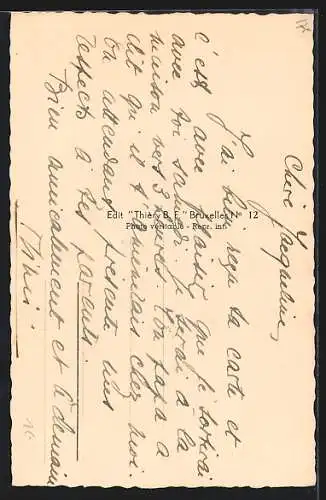 Chère Jacqueline,
J'ai bien reçu ta carte et
c'est avec plaisir que je sortirai
avec toi samedi. Je serai à la
maison vers 3 heures. Ton papa a
dit qu'il t'amènerait chez moi.
En attendant, présente mes
respects à tes parents.
Bien amicalement et à demain
Edit "Thiéry B. F." Bruxelles N° 12
Photo véritable - Repr. int.